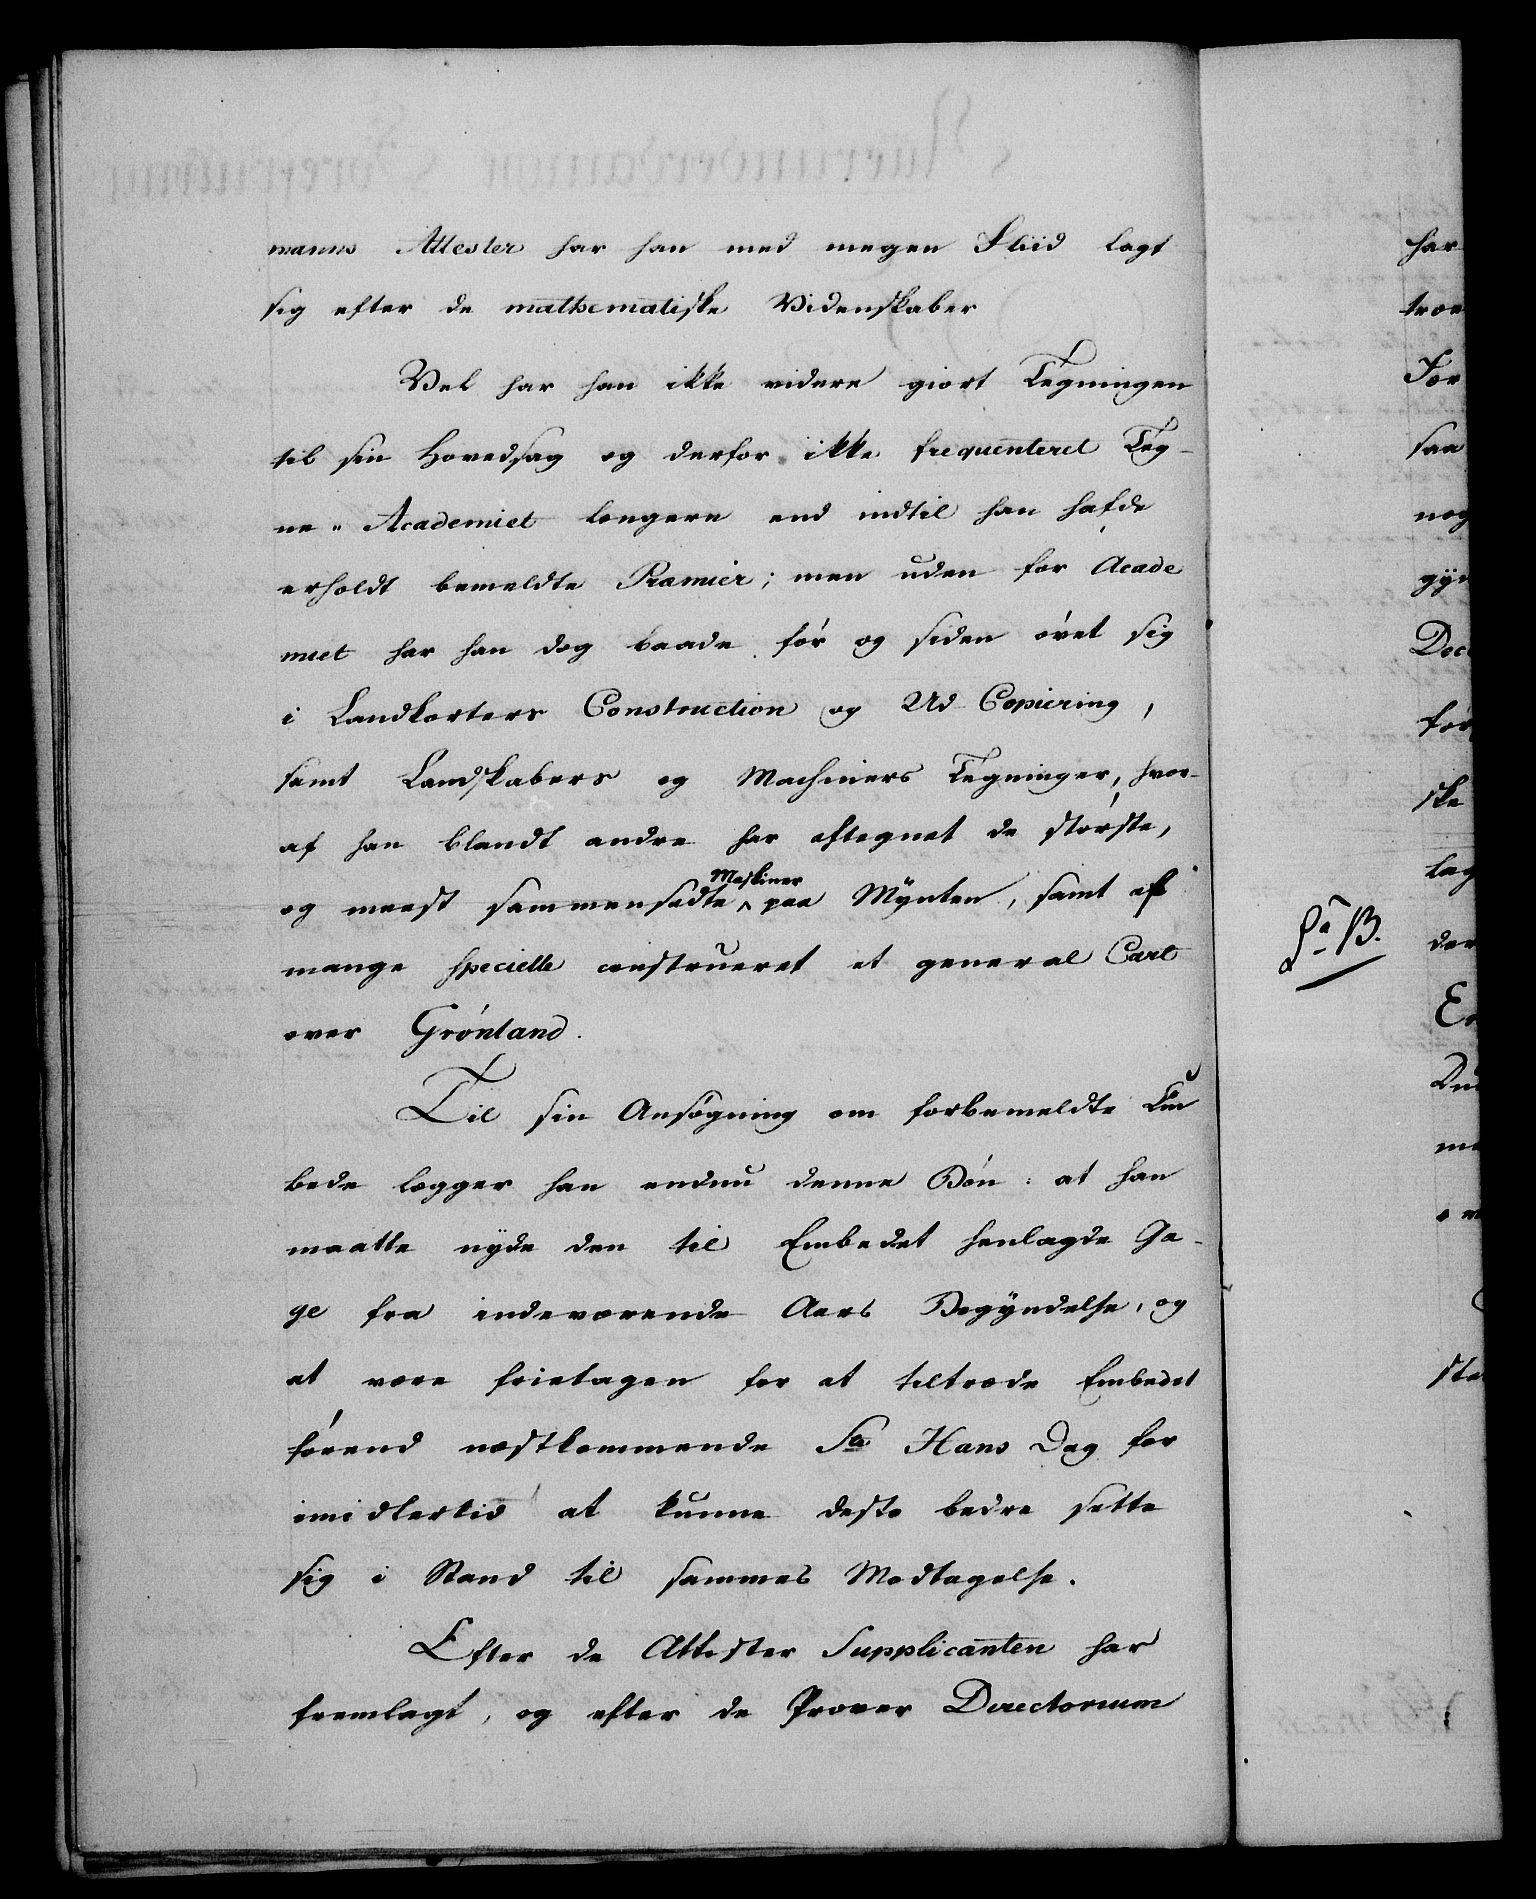 manns Attester har han med megen Fliid lagt
sig efter de mathematiske Videnskaber
Vel har han ikke videre giort Tegningen
til sin Hovedsag og derfor ikke frequenteret Teg-
ne-Academiet længere end indtil han hafde
erholdt bemeldte Præmier; men uden for Acade
miet har han dog baade før og siden øvet sig
i Landkorters Construction og Ud Copiering,
samt Landskabers og Machiners Tegninger, hvor-
af han blandt andre har aftegnet de største,
og meest sammensadte ^ Maskiner paa Mÿnten, samt af
mange specielle construeret et general Cart
over Grønland.
Til sin Ansøgning om forbemeldte Em
bede lægger han endnu denne Bøn: at han
maatte nyde den til Embedet henlagde Ga-
ge fra indeværende Aars Begÿndelse, og
at være frietagen for at tiltræde Embedet
førend næstkommende St Hans Dag for
imidlertid at kunne desto bedre sette
sig i Stand til sammes Modtagelse.
Efter de Attester Supplicanten har
fremlagt, og efter de Prøver Directorium
har
træe
For
saa
nog
gÿn
Dec
for
ske
lag
L<sup>a</sup> B.
der
En
Du
me
sta